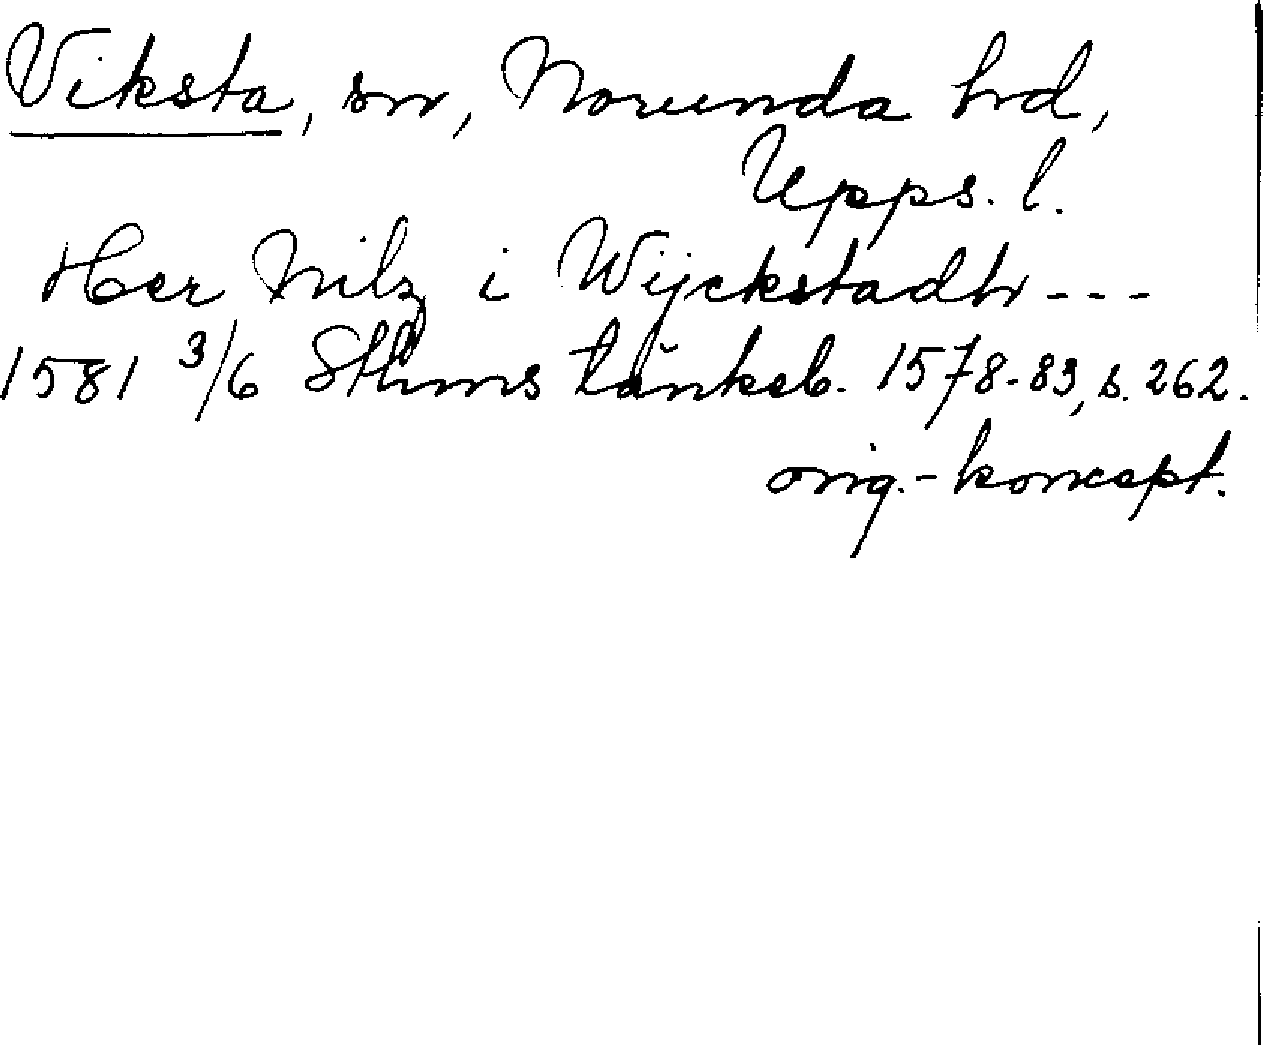 Viksta, sn, Norunda hd,
Upps. l.
Her Nilz i Wijckstadh - - -
1581 3/6 Sthms tänkeb. 1578-83, s. 262.
orig.-koncept.